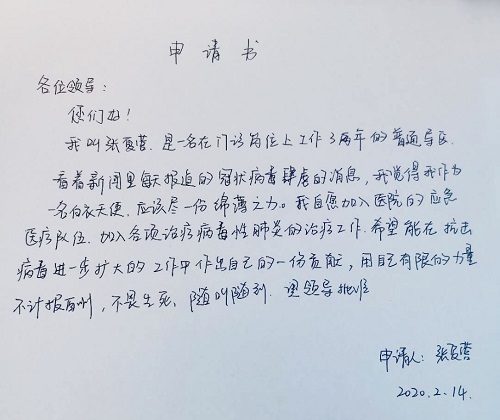 申请书
各位领导：
您们好！
我叫张夏营，是一名在门诊岗位上工作了两年的普通导医。
看着新闻里每天报道的冠状病毒肆虐的消息，我觉得我作为
一名白衣天使，应该尽一份绵薄之力。我自愿加入医院的应急
医疗队伍，加入各项治疗病毒性肺炎的治疗工作。希望能在抗击
病毒进一步扩大的工作中作出自己的一份贡献，用自己有限的力量
不计报酬，不畏生死，随叫随到。望领导批准
申请人：张夏营
2020.2.14.